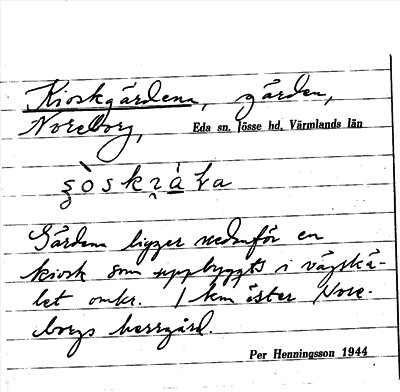 Kioskgärdena, gärden,
Noreborg, Eda sn. Jösse hd. Värmlands län
Gärdena ligger nedanför en
kiosk som uppbyggts i vägskä-
let omkr. 1 km öster Nore-
borgs herrgård.
Per Henningsson 1944